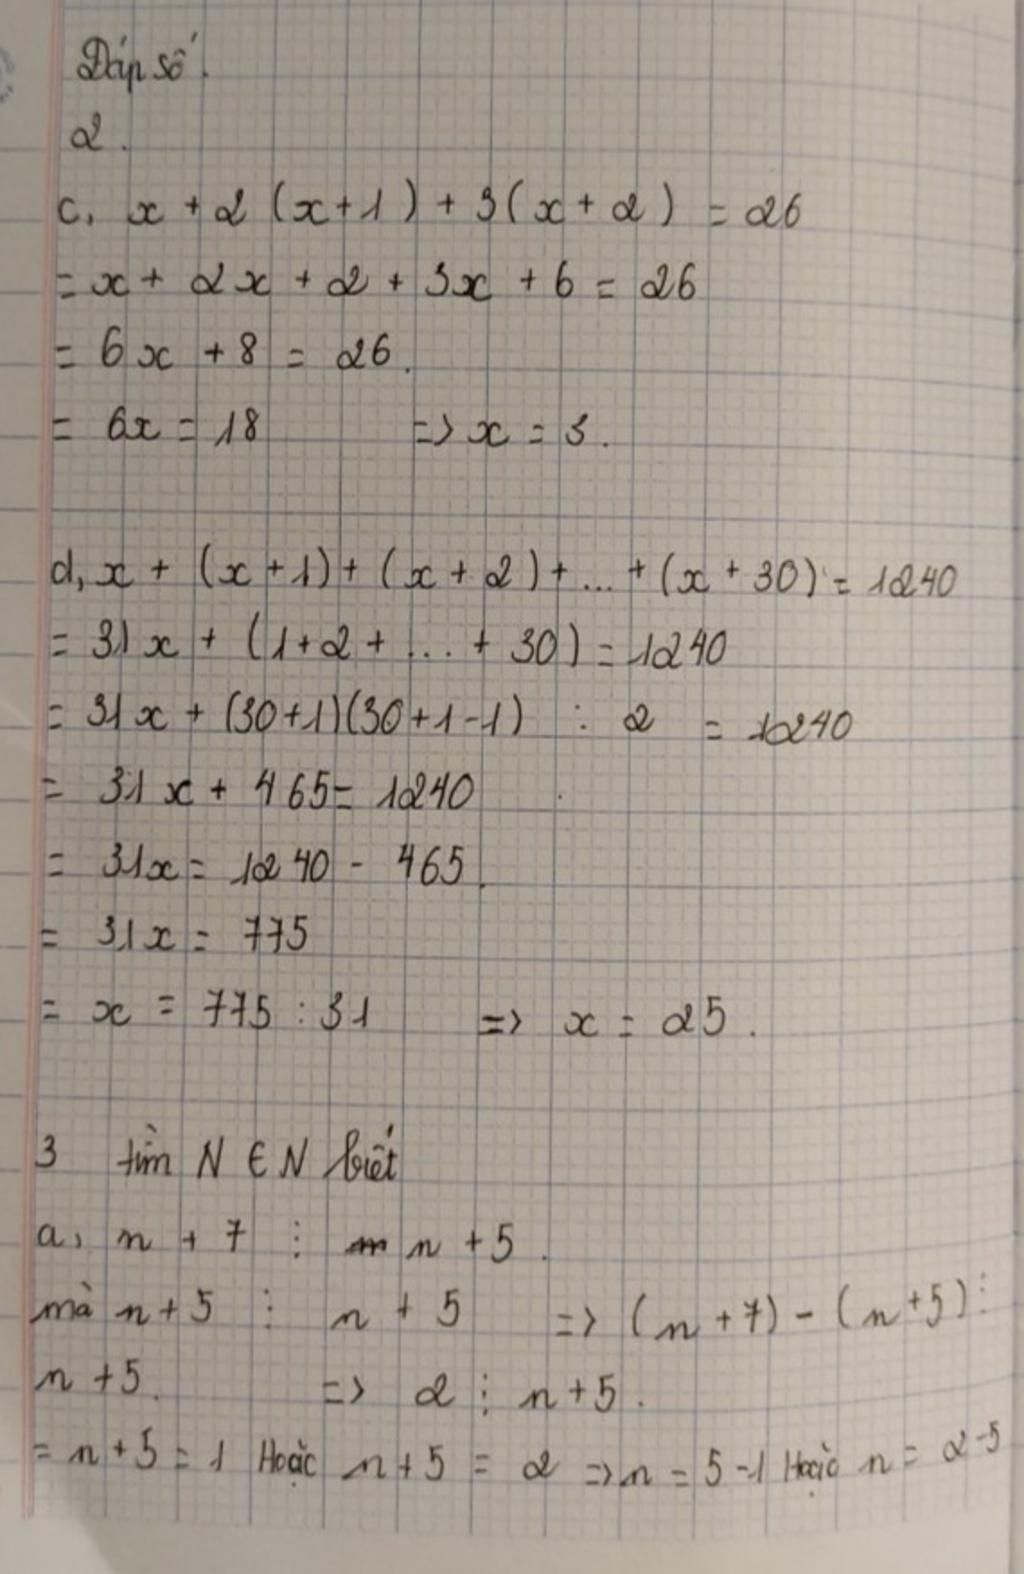 Đáp số.
2.
c, x + 2 (x+1) + 3(x + 2) = 26
= x + 2x + 2 + 3x + 6 = 26
= 6x + 8 = 26.
= 6x = 18 => x = 3.
d, x + (x+1) + (x + 2) + ... + (x + 30) = 1240
= 31x + (1+2+ ... + 30) = 1240
= 31x + (30+1)(30+1-1) : 2 = 1240
= 31x + 465 = 1240
= 31x = 1240 - 465.
= 31x = 775
= x = 775 : 31 => x = 25.
3 tìm N ∈ N biết
a, n + 7 ⋮ n + 5.
mà n + 5 ⋮ n + 5 => (n + 7) - (n + 5) ⋮
n + 5. => 2 ⋮ n + 5.
= n + 5 = 1 Hoặc n + 5 = 2 => n = 5 - 1 Hoặc n = 2 - 5